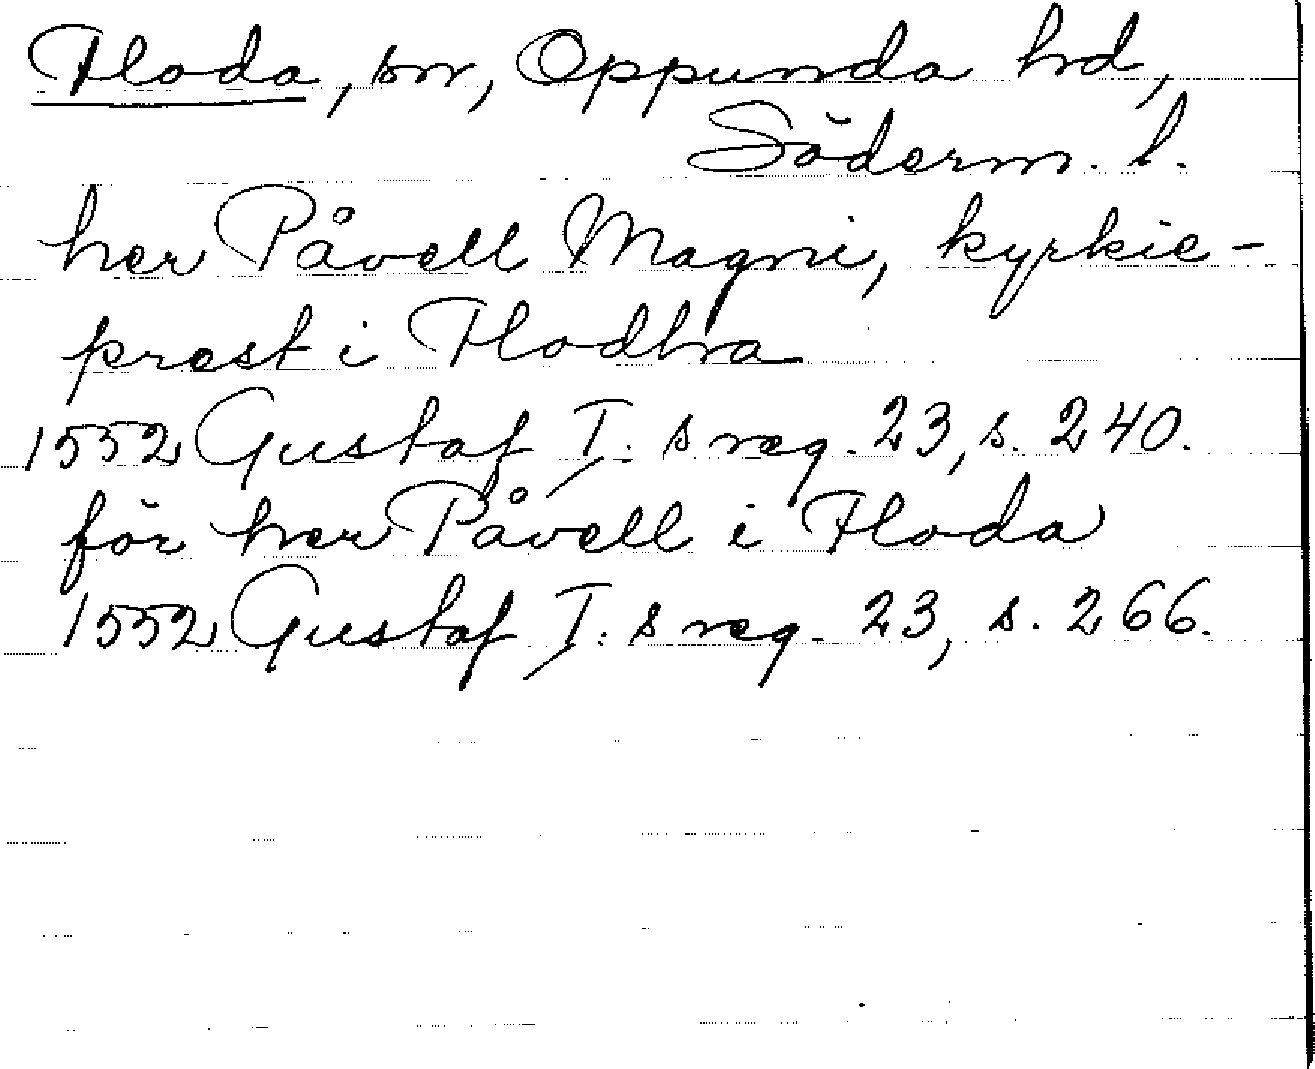 Floda, sn, Oppunda hd,
Söderm. l.
her Påvell Magni, kyrkie-
prest i Flodhra
1552 Gustaf I:s reg. 23, s. 240.
för her Påvell i Floda
1552 Gustaf I:s reg. 23, s. 266.